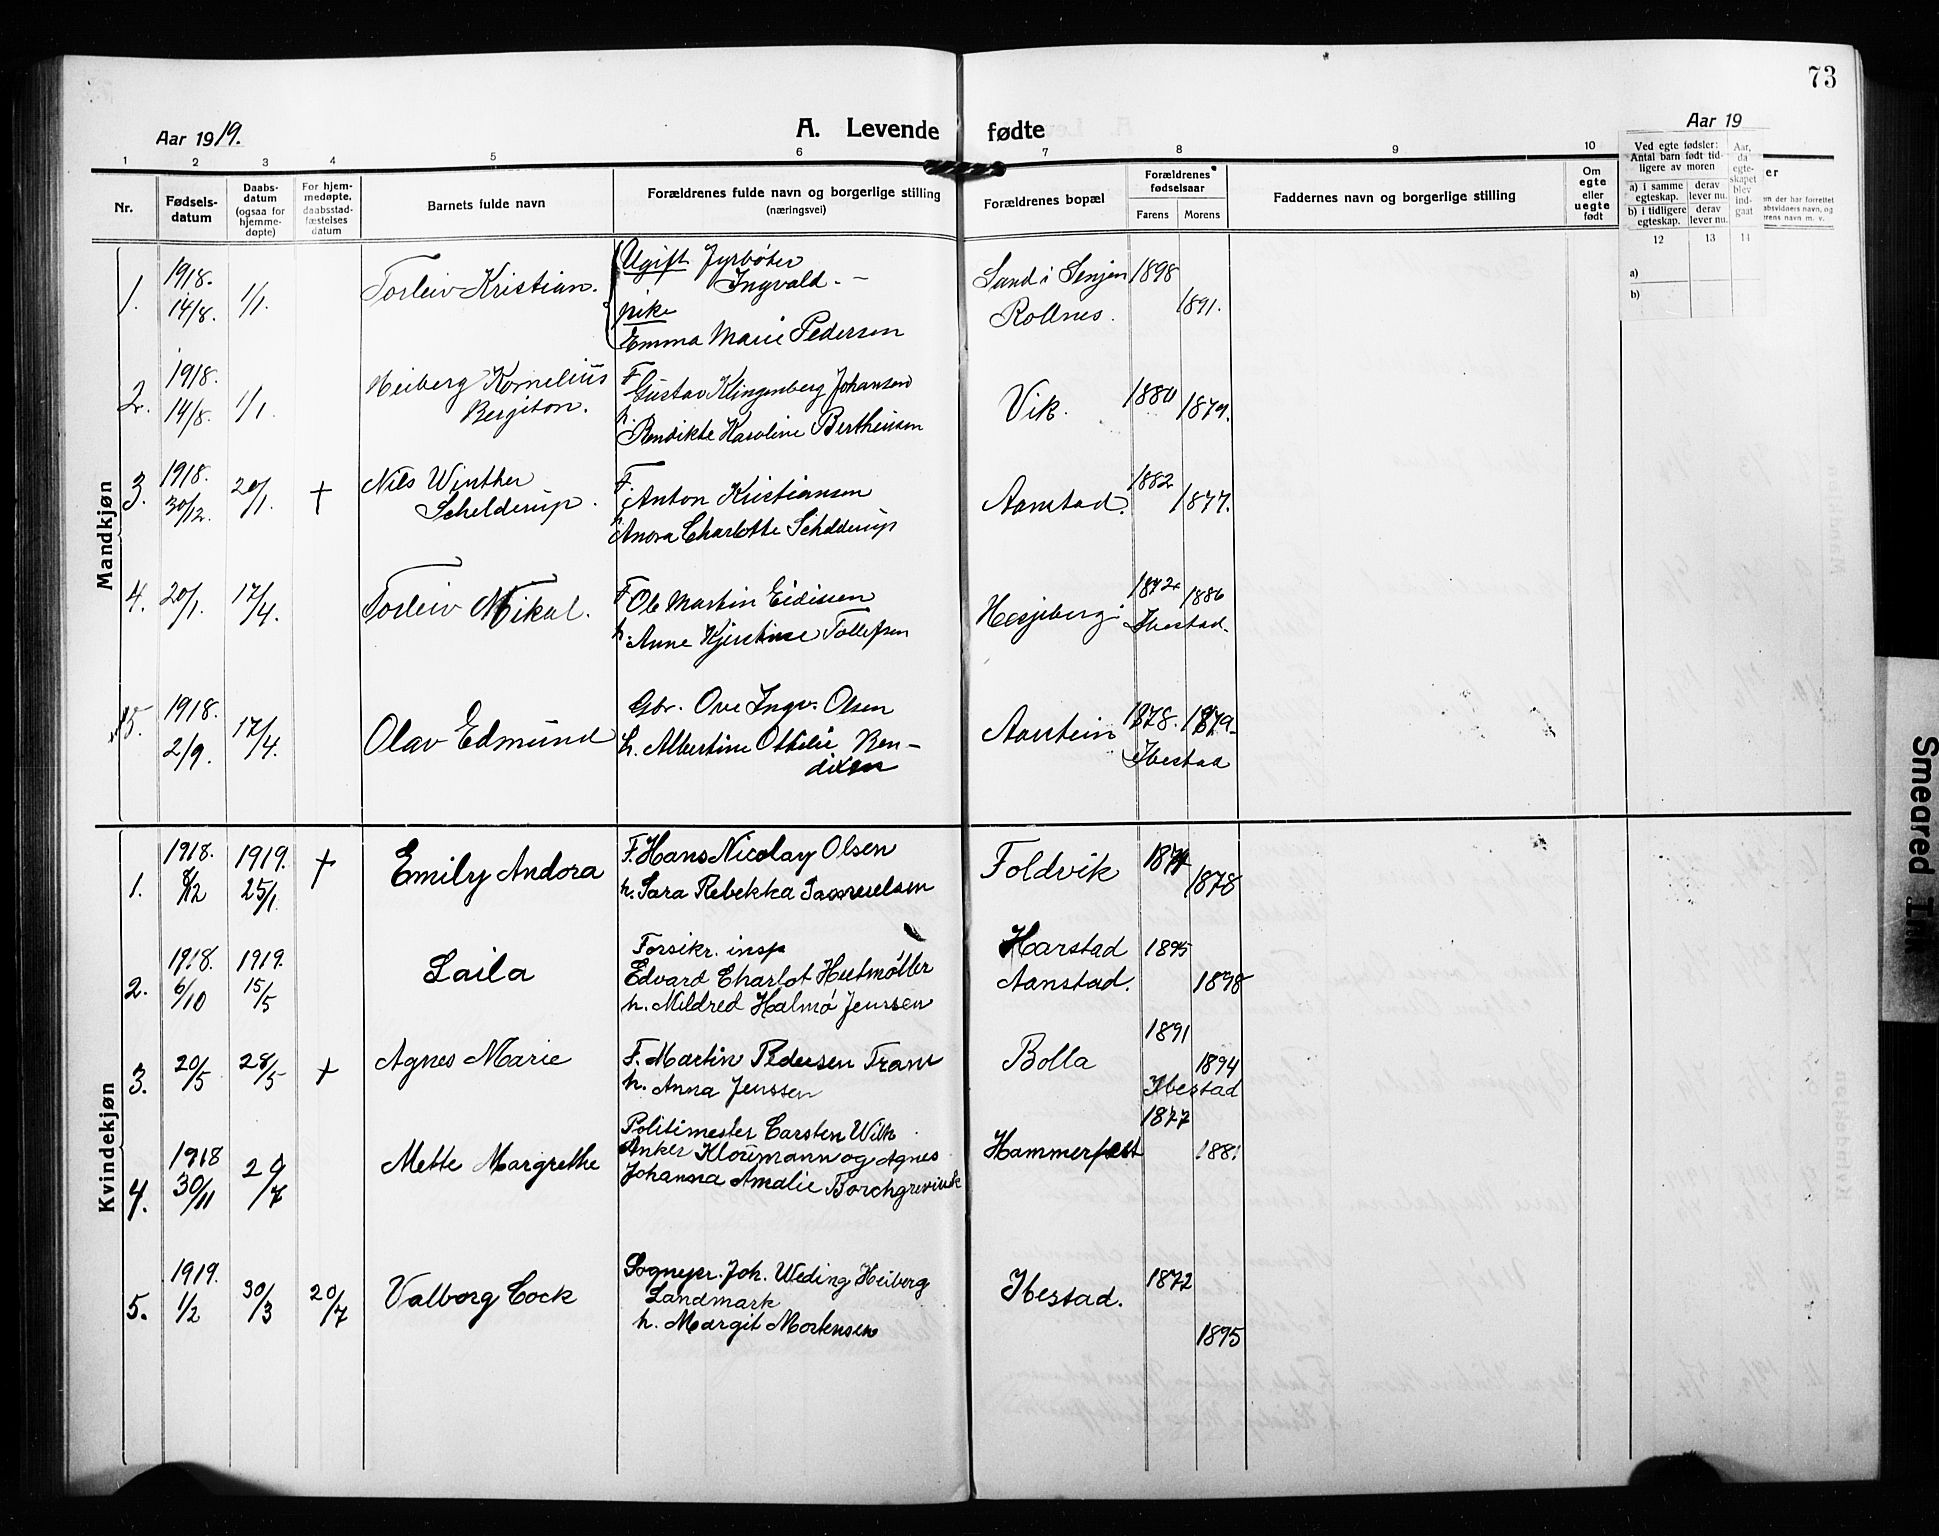 73
Aar 1919.
A. Levende fødte
Aar 19
1 2 3 4 5 6 7 8 9 10
Nr.
Fødsels-
datum
Daabs-
datum
(ogsaa for
hjemme-
døpte)
For hjem-
medøpte,
daabsstad-
fæstelses
datum
Barnets fulde navn
Forældrenes fulde navn og borgerlige stilling
(næringsvei)
Forældrenes bopæl
Forældrenes
fødselsaar
Farens Morens
Faddernes navn og borgerlige stilling
Om
egte
eller
uegte
født
Ved egte fødsler:
Antal barn født tid-
ligere av moren
a) i samme
egteskap.
derav
lever nu.
b) i tidligere
egteskap.
derav
lever nu.
Aar,
da
egte-
skapet
blev
ind-
gaat
12 13 14
a)
b)
Mandkjøn
1. 1918. 14/8. 1/1. Torleiv Kristian.
Ugift Fyrbøter
Ingvald
pike
Emma Marie Pedersen
Sand i Senjen 1898
Rollnes. 1891.
2. 1918. 14/8. 1/1. Heiberg Kornelius
Bergiton.
F. Gustav Klingenberg Johansen
h. Bendikte Karoline Bertheussen
Vik. 1880 1879.
3. 1918. 30/12. 20/1. † Nils Winther
Schelderup.
F. Anton Kristiansen
h. Anora Charlotte Schelderup
Aanstad. 1882 1877.
4. 20/1. 17/4. Torleiv Mikal.
F. Ole Martin Eidissen
h. Anne Kjerstine Tollefsen
Hesjeberg 1886
Ibestad.
5. 1918. 2/9. 17/4. Olav Edmund
Gbr. Ove Ingv. Olsen
h. Albertine Ottilie Ben-
dixen
Aanstein 1878. 1879.
Ibestad
Kvindekjøn
1. 1918. 8/12 1919. 25/1. † Emily Andora
F. Hans Nicolay Olsen
h. Sara Rebekka Samuelsen
Foldvik 1878
2. 1918. 6/10 1919. 15/5 Laila
Forsikr. insp
Edvard Charlot Heitmøller
h. Mildred Halmø Jenssen
Harstad 1895
Aanstad. 1898
3. 20/5 28/5 † Agnes Marie
F. Martin Pedersen Trane
h. Anna Jenssen
Bolla 1891 1894
Ibestad
4. 1918 30/11 20/7 Mette Margrethe
Politimester Carsten Wilh.
Anker Kloumann og Agnes
Johanna Amalie Borchgrevink
Hammerfest 1877 1881
5. 1919. 1/2 30/3 20/7 Valborg Cock
Sognepr. Joh. Weding Heiberg
Landmark
h. Margit Mortensen
Ibestad. 1872
1895
Smeared Ink